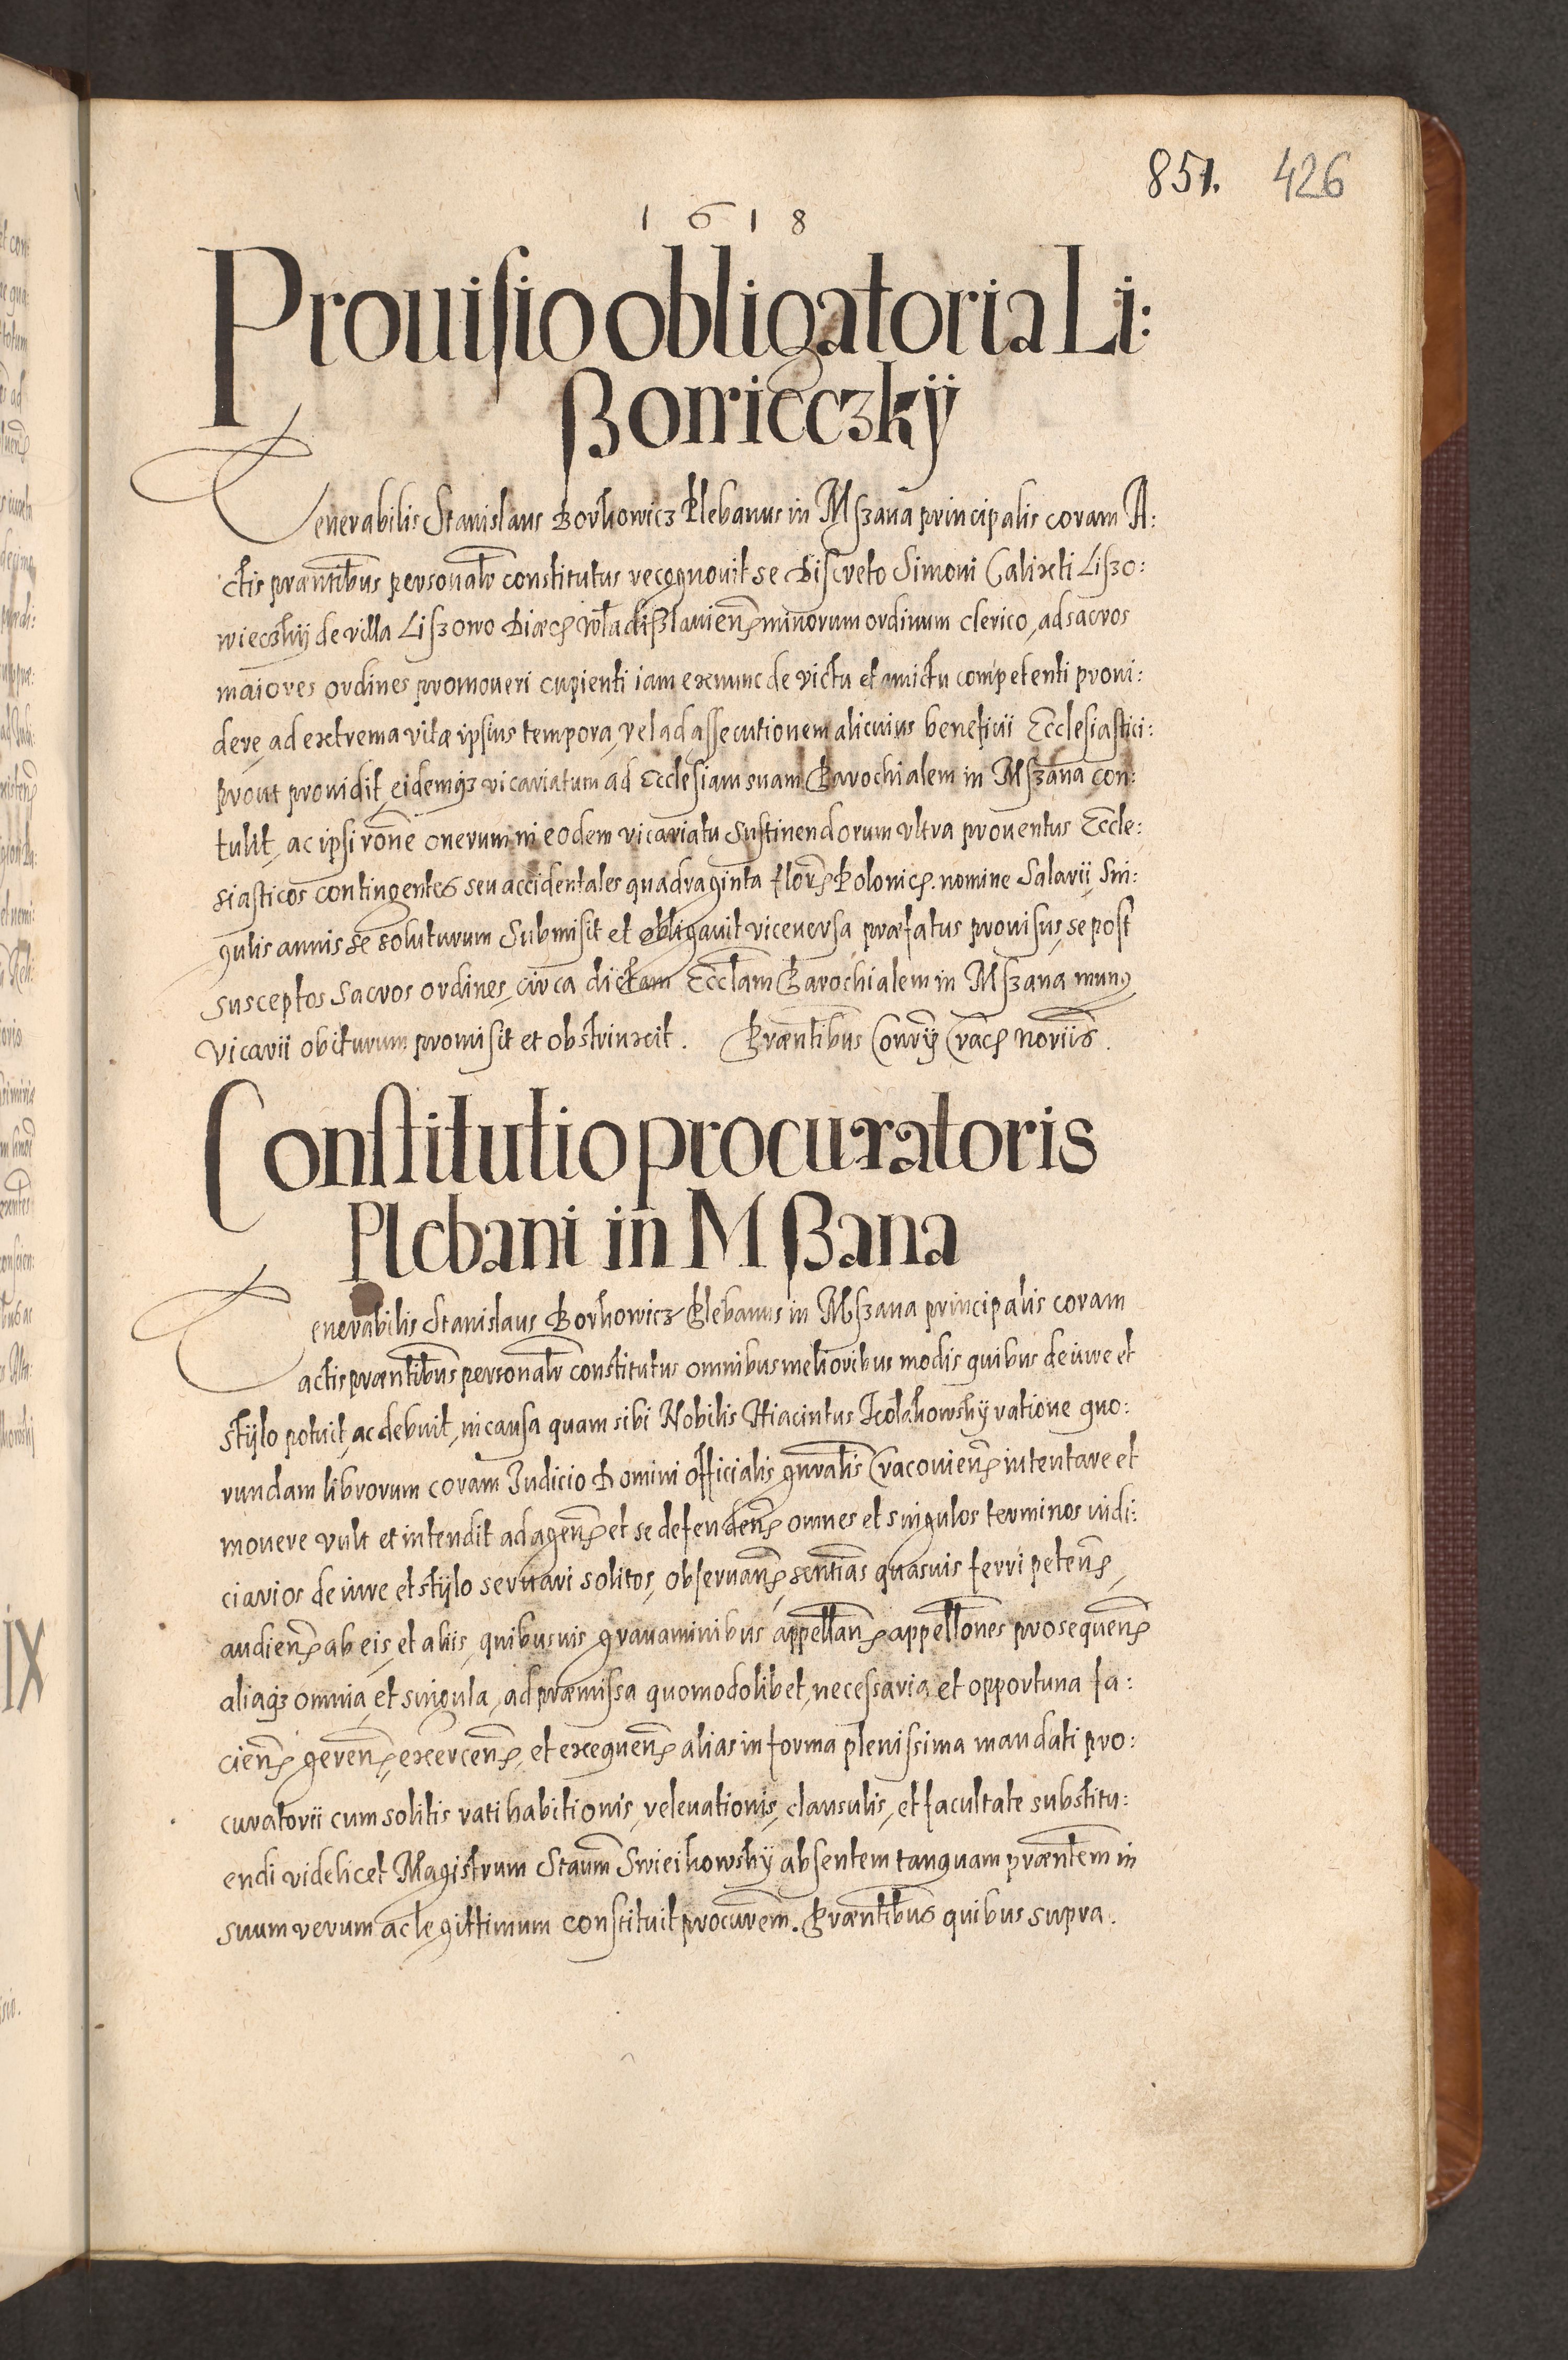 851. 426
1618
Prouisio obligatoria Li:
ßowieczkÿ
Venerabilis Stanislaus Borkowicz Plebanus in Mszana principalis coram A:
ctis præntibus personalr constitutus recognouit se Discreto Simoni Calixti Liszo:
wieczkij de villa Liszowo Diæc. Wladißlauien. minorum ordinum clerico, ad sacros
maiores ordines promoueri cupienti iam exnunc de victu et amictu competenti proui:
dere, ad extrema vitæ ipsius tempora, vel ad assecutionem alicuius beneficii Ecclesiastici:
prout prouidit, eidemq3 vicariatum ad Ecclesiam suam Parochialem in Mszana con:
tulit, ac ipsi rõne onerum in eodem vicariatu sustinendorum vltra prouentus Eccle:
siasticos contingentes seu accidentales quadraginta floren. Polonic. nomine Salarii, Sin:
gulis annis se soluturum Submisit et obligauit viceuersa præfatus prouisus, se post
susceptos Sacros ordines, circa dictam Ecclam Parochialem in Mszana munus
vicarii obiturum promisit et obstrinxit. Præntibus Conrÿ Crac. noriis.
Constitutio procuratoris
Plebani in Mßana
Venerabilis Stanislaus Borkowicz Plebanus in Mszana principalis coram
actis præntibus personalr constitutus omnibus melioribus modis quibus de iure et
stÿlo potuit, ac debuit, in causa quam sibi Nobilis Hiacintus ratione quo:
rundam librorum coram Judicio Domini Officialis gnralis Cracouien. intentare et
mouere vult et intendit ad agen. et se defenden. omnes et singulos terminos iudi:
ciarios de iure et stÿlo seruari solitos, obseruan. sentias quasuis ferri peten.
audien. ab eis, et aliis, quibusuis grauaminibus appellan. appellones prosequen.
aliaq3 omnia, et singula, ad præmissa quomodolibet, necessaria, et opportuna fa:
cien. geren. exercen. et exequen. alias in forma plenissima mandati pro:
curatorii cum solitis ratihabitionis, releuationis, clausulis, et facultate substitu:
endi videlicet Magistrum Staum Swieikowskÿ absentem tanquam præntem in
suum verum ac legittimum constituit procurem. Præntibus quibus supra.